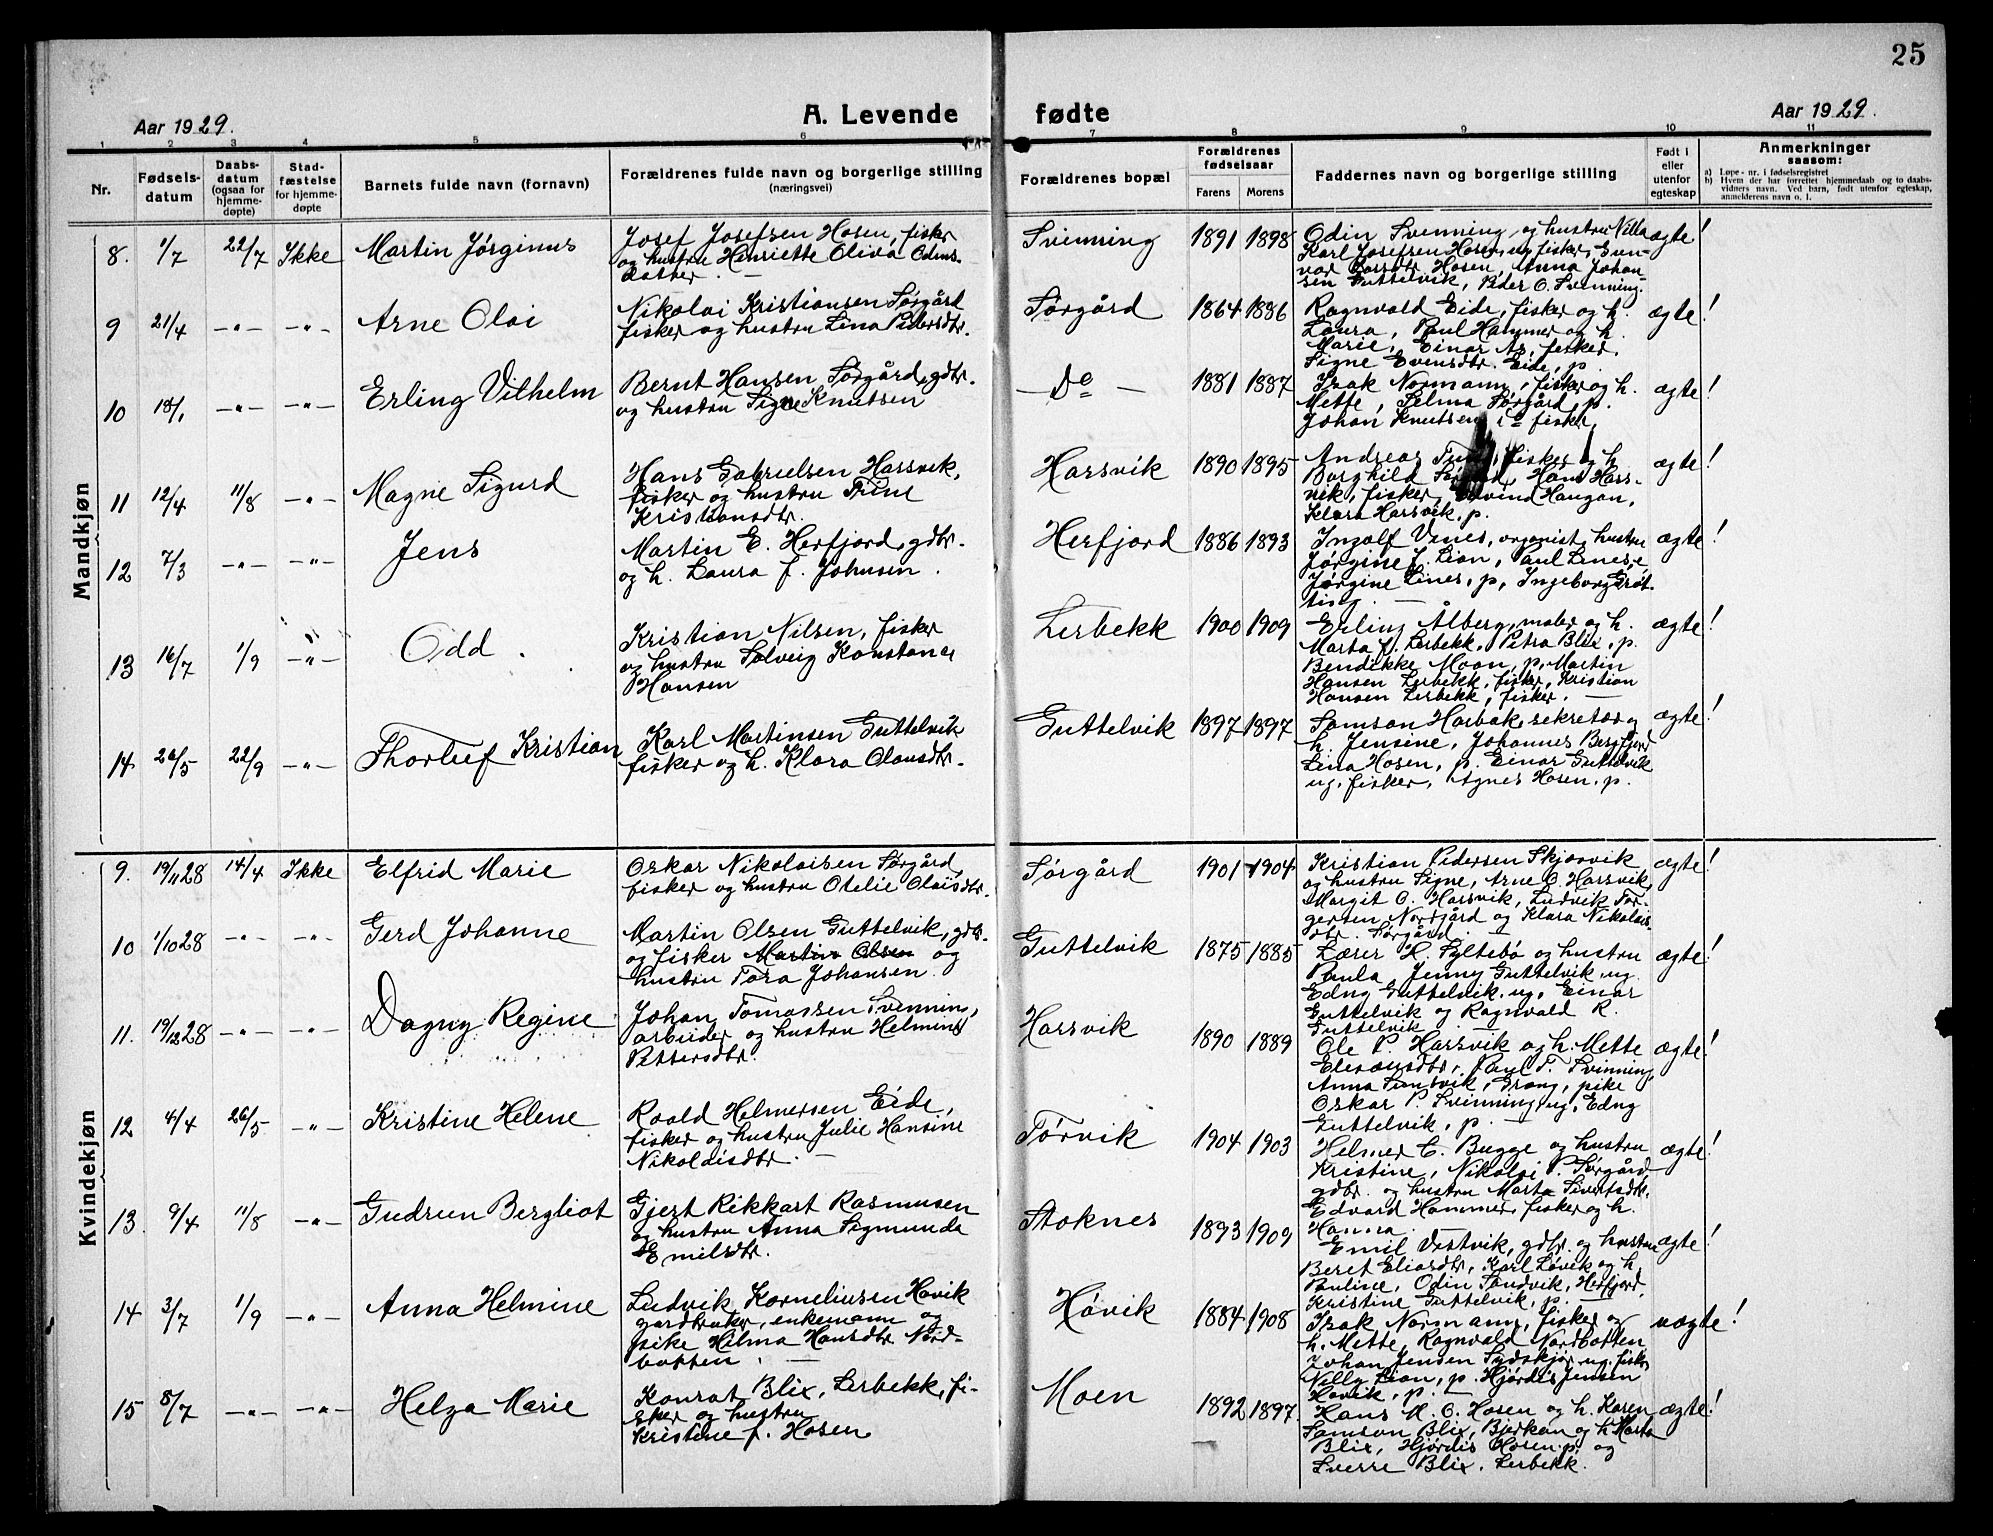 25
A. Levende fødte
Aar 1929.
Aar 1929.
1 2 3 4 5 6 7 8 9 10 11
Nr.
Fødselsdatum
Daabsdatum (ogsaa for hjemmedøpte)
Stadfæstelse for hjemmedøpte
Barnets fulde navn (fornavn)
Forældrenes fulde navn og borgerlige stilling
(næringsvei)
Forældrenes bopæl
Forældrenes fødselsaar
Farens Morens
Faddernes navn og borgerlige stilling
Født i eller utenfor egteskap
Anmerkninger
saasom:
a) Løpe-nr. i fødselsregistret
b) Hvem der har forrettet hjemmedaab og to daabsvidners navn. Ved barn, født utenfor egteskap, anmelderens navn o. l.
Mandkjøn
8. 1/7 22/7 Ikke Martin Jørginus
Josef Josefsen Hosen, fisker
og hustru Henriette Oliva Odins-
datter. —
Svenning 1891 1898
Odin Svenning og hustru Nilla
Karl Josefsen Hosen, ug. fisker,
Hosen, Anna Johan
sen Guttelvik, Peder O. Svenning.
ægte!
9 21/4 -"- -"- Arne Olai
Nikolai Kristiansen Sørgård
fisker og hustru Lina Pedersdtr.
Sørgård 1864 1886
Ragnvald Eide, fisker og h.
Laura, Paul Hammer og h.
Marie, Einar As, fisker,
Signe Evensdtr. Eide, p.
ægte!
10 18/1 -"- -"- Erling Vilhelm
Bernt Hansen Sørgård, gdbr.
og hustru Signe Knutsen
— Do — 1881 1887
Isak Normann, fisker og h.
Mette, Selma Sørgård, p.
Johan Knutsen, fisker
ægte!
11 12/4 11/8 -"- Magne Sigurd
Hans Gabrielsen Harsvik,
fisker og hustru Trine
Kristiansdtr.
Harsvik 1890 1895
Andreas fisker og h.
Borghild Hans Hars-
vik, fisker, Eivind Haugan,
Klara Harsvik, p.
ægte!
12 7/3 -"- -"- Jens
Martin E. Herfjord, gdbr.
og h. Laura f. Johnsen.
Herfjord 1886 1893
Ingolf Venes, organist, hustru
Jørgine f. Lian, Paul Lines,
Jørgine Lines, p, Ingeborg Grøt-
ting. —
ægte!
13 16/7 1/9 -"- Odd.
Kristian Nilsen, fisker
og hustru Solveig Konstanse
Hansen
Lerbekk 1900 1909
Erling Ålberg, maler og h.
Marta f. Lerbekk, Petra Blix, p.
Bendikke Moan, p, Martin
Hansen Lerbekk, fisker, Kristian
Hansen Lerbekk, fisker. —
ægte!
14 26/5 22/9 -"- Thorleif Kristian
Karl Martinsen Guttelvik
fisker og h. Klara Olausdtr.
Guttelvik 1897 1897
Samson Harbak, sekretær og
h. Jensine, Johannes Bergfjord
Lina Hosen, p. Einar Guttelvik
ug. fisker, Agnes Hosen, p.
ægte!
Kvindekjøn
9. 19/11 28 14/4 Ikke Elfrid Marie
Oskar Nikolaisen Sørgård,
fisker og hustru Otelie Olaisdtr.
Sørgård 1901 1904
Kristian Pedersen Skjærvik
og hustru Signe, Arne O. Harsvik,
Margit O. Harsvik, Ludvik Tor-
gersen Nordgård og Klara Nikolais
dtr. Sørgård —
ægte!
10 1/10 28 -"- -"- Gerd Johanne
Martin Olsen Guttelvik, gdb.
og fisker Martin Olsen og
hustru Tora Johansen.
Guttelvik 1875 1885
Lærer H. Syltebø og hustru
Paula, Jenny Guttelvik, ug.
Edny Guttelvik, ug, Einar
Guttelvik og Ragnvald R.
Guttelvik. —
ægte!
11. 19/12 28 -"- -"- Dagny Regine
Johan Tomassen Svenning,
arbeider og hustru Helmine
Pettersdtr.
Harsvik 1890 1889
Ole P. Harsvik og h. Mette
Eleseusdtr, Paul T. Svinning,
Anna pike
Oskar P. Svinning, ug, Edny
Guttelvik, p. —
ægte!
12 4/4 26/5 -"- Kristine Helene
Roald Helmersen Eide,
fisker og hustru Julie Hansine
Nikolaisdtr. —
Tørvik 1904 1903
Helmer C. Bugge og hustru
Kristine, Nikolai P. Sørgård
gdbr. og hustru Marta Sivertsdtr.
Edvard Hammer, fisker og h.
Hanna.
ægte!
13. 9/4 11/8 -"- Gudrun Bergliot
Gjert Rikkart Rasmusen
og hustru Anna Sigmunda
Emilsdtr.
Stoknes 1893 1909
Emil Vestvik, gdbr. og hustru
Beret Eliasdtr, Karl Løvik og h.
Pauline, Odin Sandvik, Herfjord,
Kristine Guttelvik, p. —
ægte!
14 3/7 1/9 -"- Anna Helmine
Ludvik Korneliusen Høvik
gardbruker, enkemann og
pike Hilma Hansdtr Nord-
botten. —
Høvik 1884 1908
Isak Normann, fisker og
h. Mette, Ragnvald Nordbotten
Johan Jensen Sydskjør, ug. fisker
Nilly Lian, p. Hjørdis Jensen
Høvik, p. —
uægte!
15 8/7 -"- -"- Helga Marie
Konrat Blix, Lerbekk, fi-
sker og hustru
Kristine f. Hosen
Moen 1892 1897.
Hans M. O. Hosen og h. Karen
Samson Blix, Bjerkan og h Marta
Blix, Hjørdis Hosen, p. og
Sverre Blix, Lerbekk.
ægte!